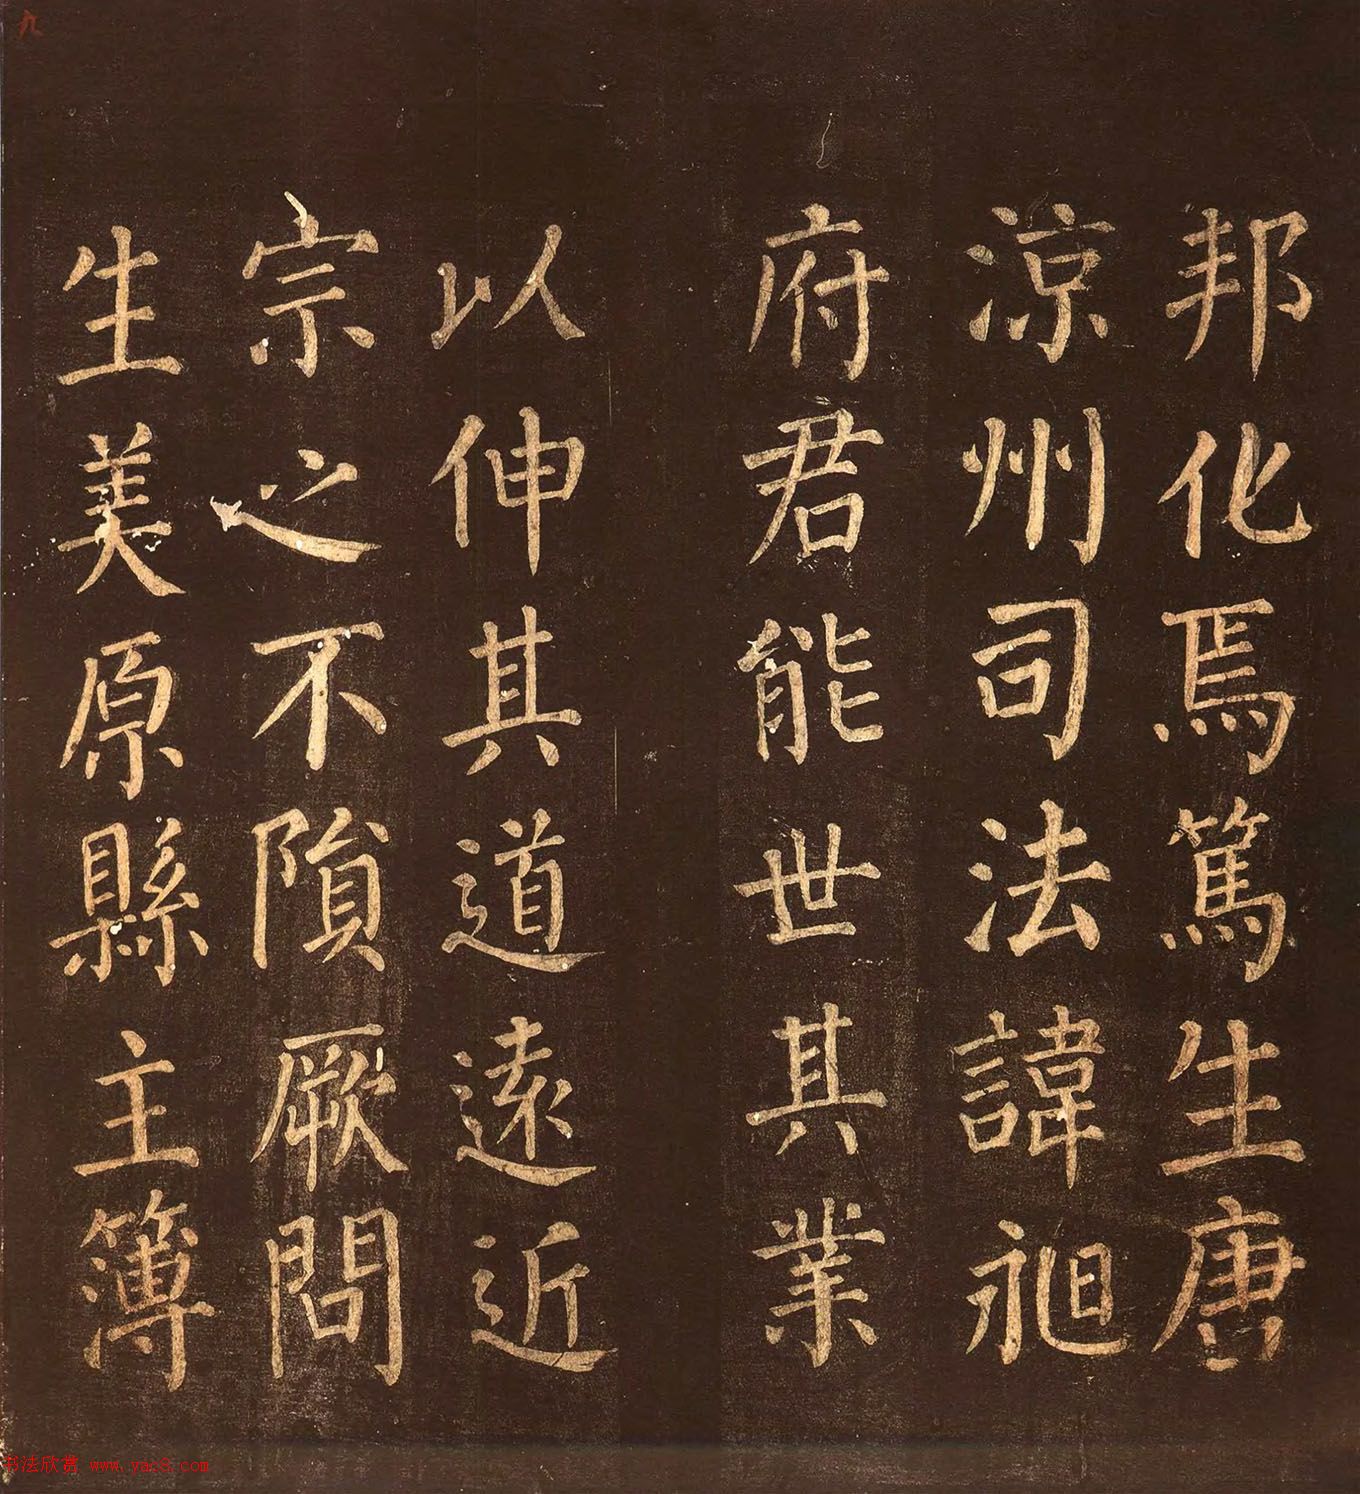 九
邦化焉篤生唐
涼州司法諱昶
府君能世其業
以伸其道遠近
宗之不隕厥問
生美原縣主簿
书法欣赏 www.yac8.com